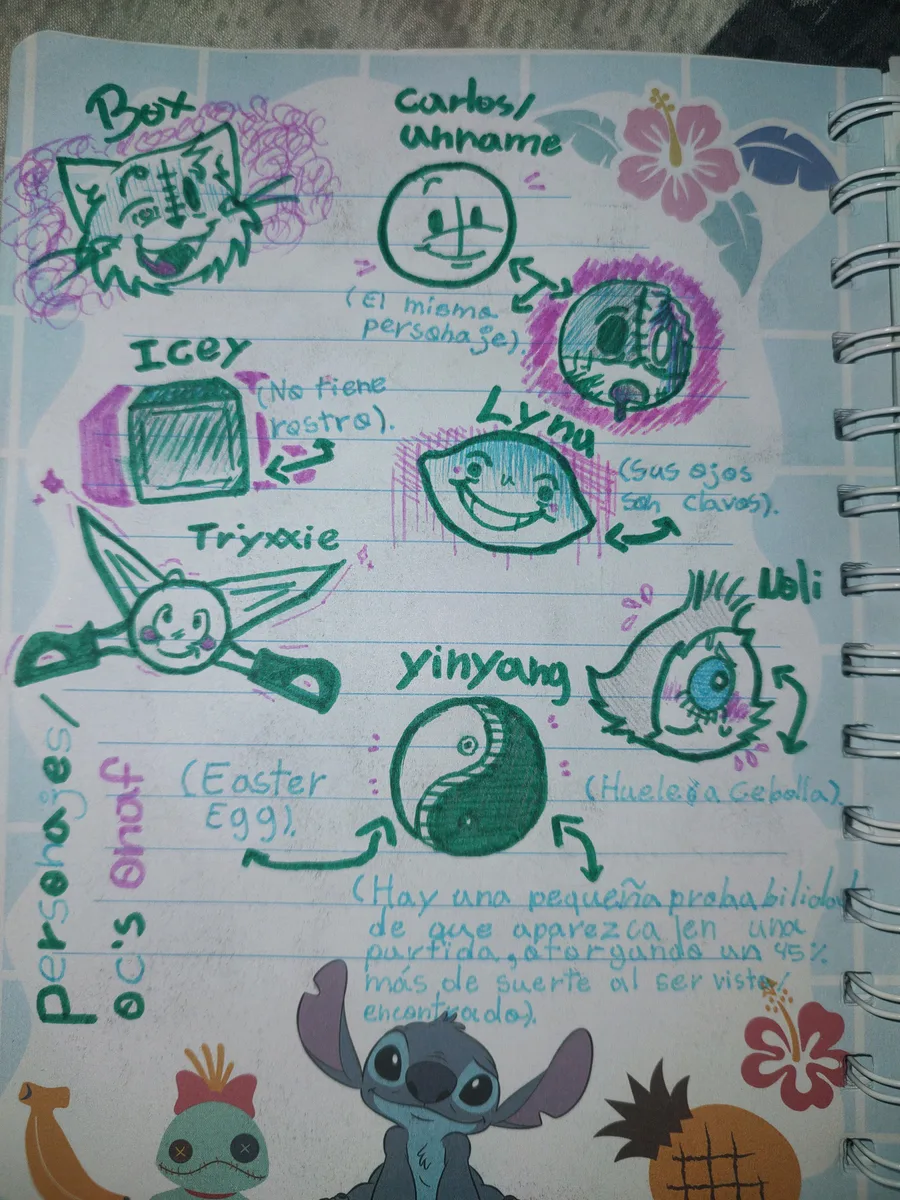 Box
Carlos/
unname
(El mismo
personaje).
Icey
(No tiene
rostro).
Lyna
(Sus ojos
son clavos).
Tryxxie
Noli
yinyang
(Easter
Egg).
(Huele a Cebolla).
(Hay una pequeña probabilidad
de que aparezca en una
partida, otorgando un 45%
más de suerte al ser visto/
encontrado).
Personajes/
oc's onaf